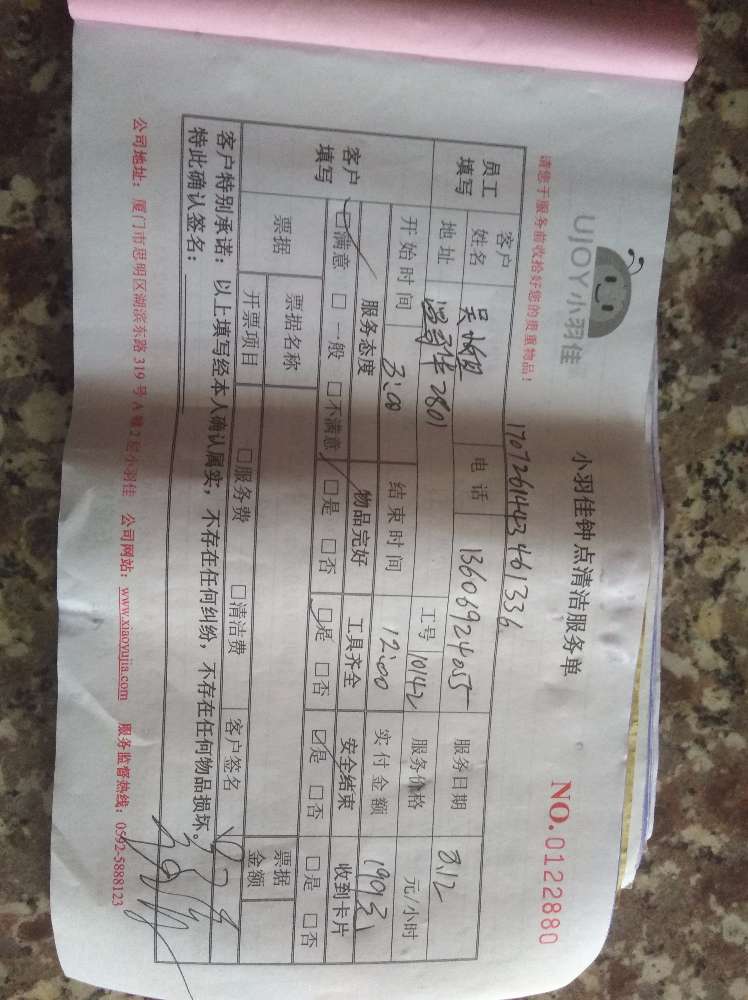 UJOY小羽佳
小羽佳钟点清洁服务单
NO.0122880
请您于服务前收拾好您的贵重物品！
1707261443461336
员工填写 客户姓名 电话 13606924055 服务日期 3.12
地址 2801 工号 10142 服务价格 元/小时
开始时间 3:00 结束时间 12:00 实付金额 190元
客户填写 服务态度 物品完好 工具齐全 安全结束 收到卡片
☑满意 □一般 □不满意 □是 □否 ☑是 □否 ☑是 □否 □是 □否
票据 票据名称 票据金额
开票项目 □服务费 □清洁费 客户签名
客户特别承诺：以上填写经本人确认属实，不存在任何纠纷，不存在任何物品损坏。
特此确认签名：
公司地址：厦门市思明区湖滨东路319号A幢2层小羽佳 公司网站：www.xiaoyujia.com 服务监督热线：0592-5888123